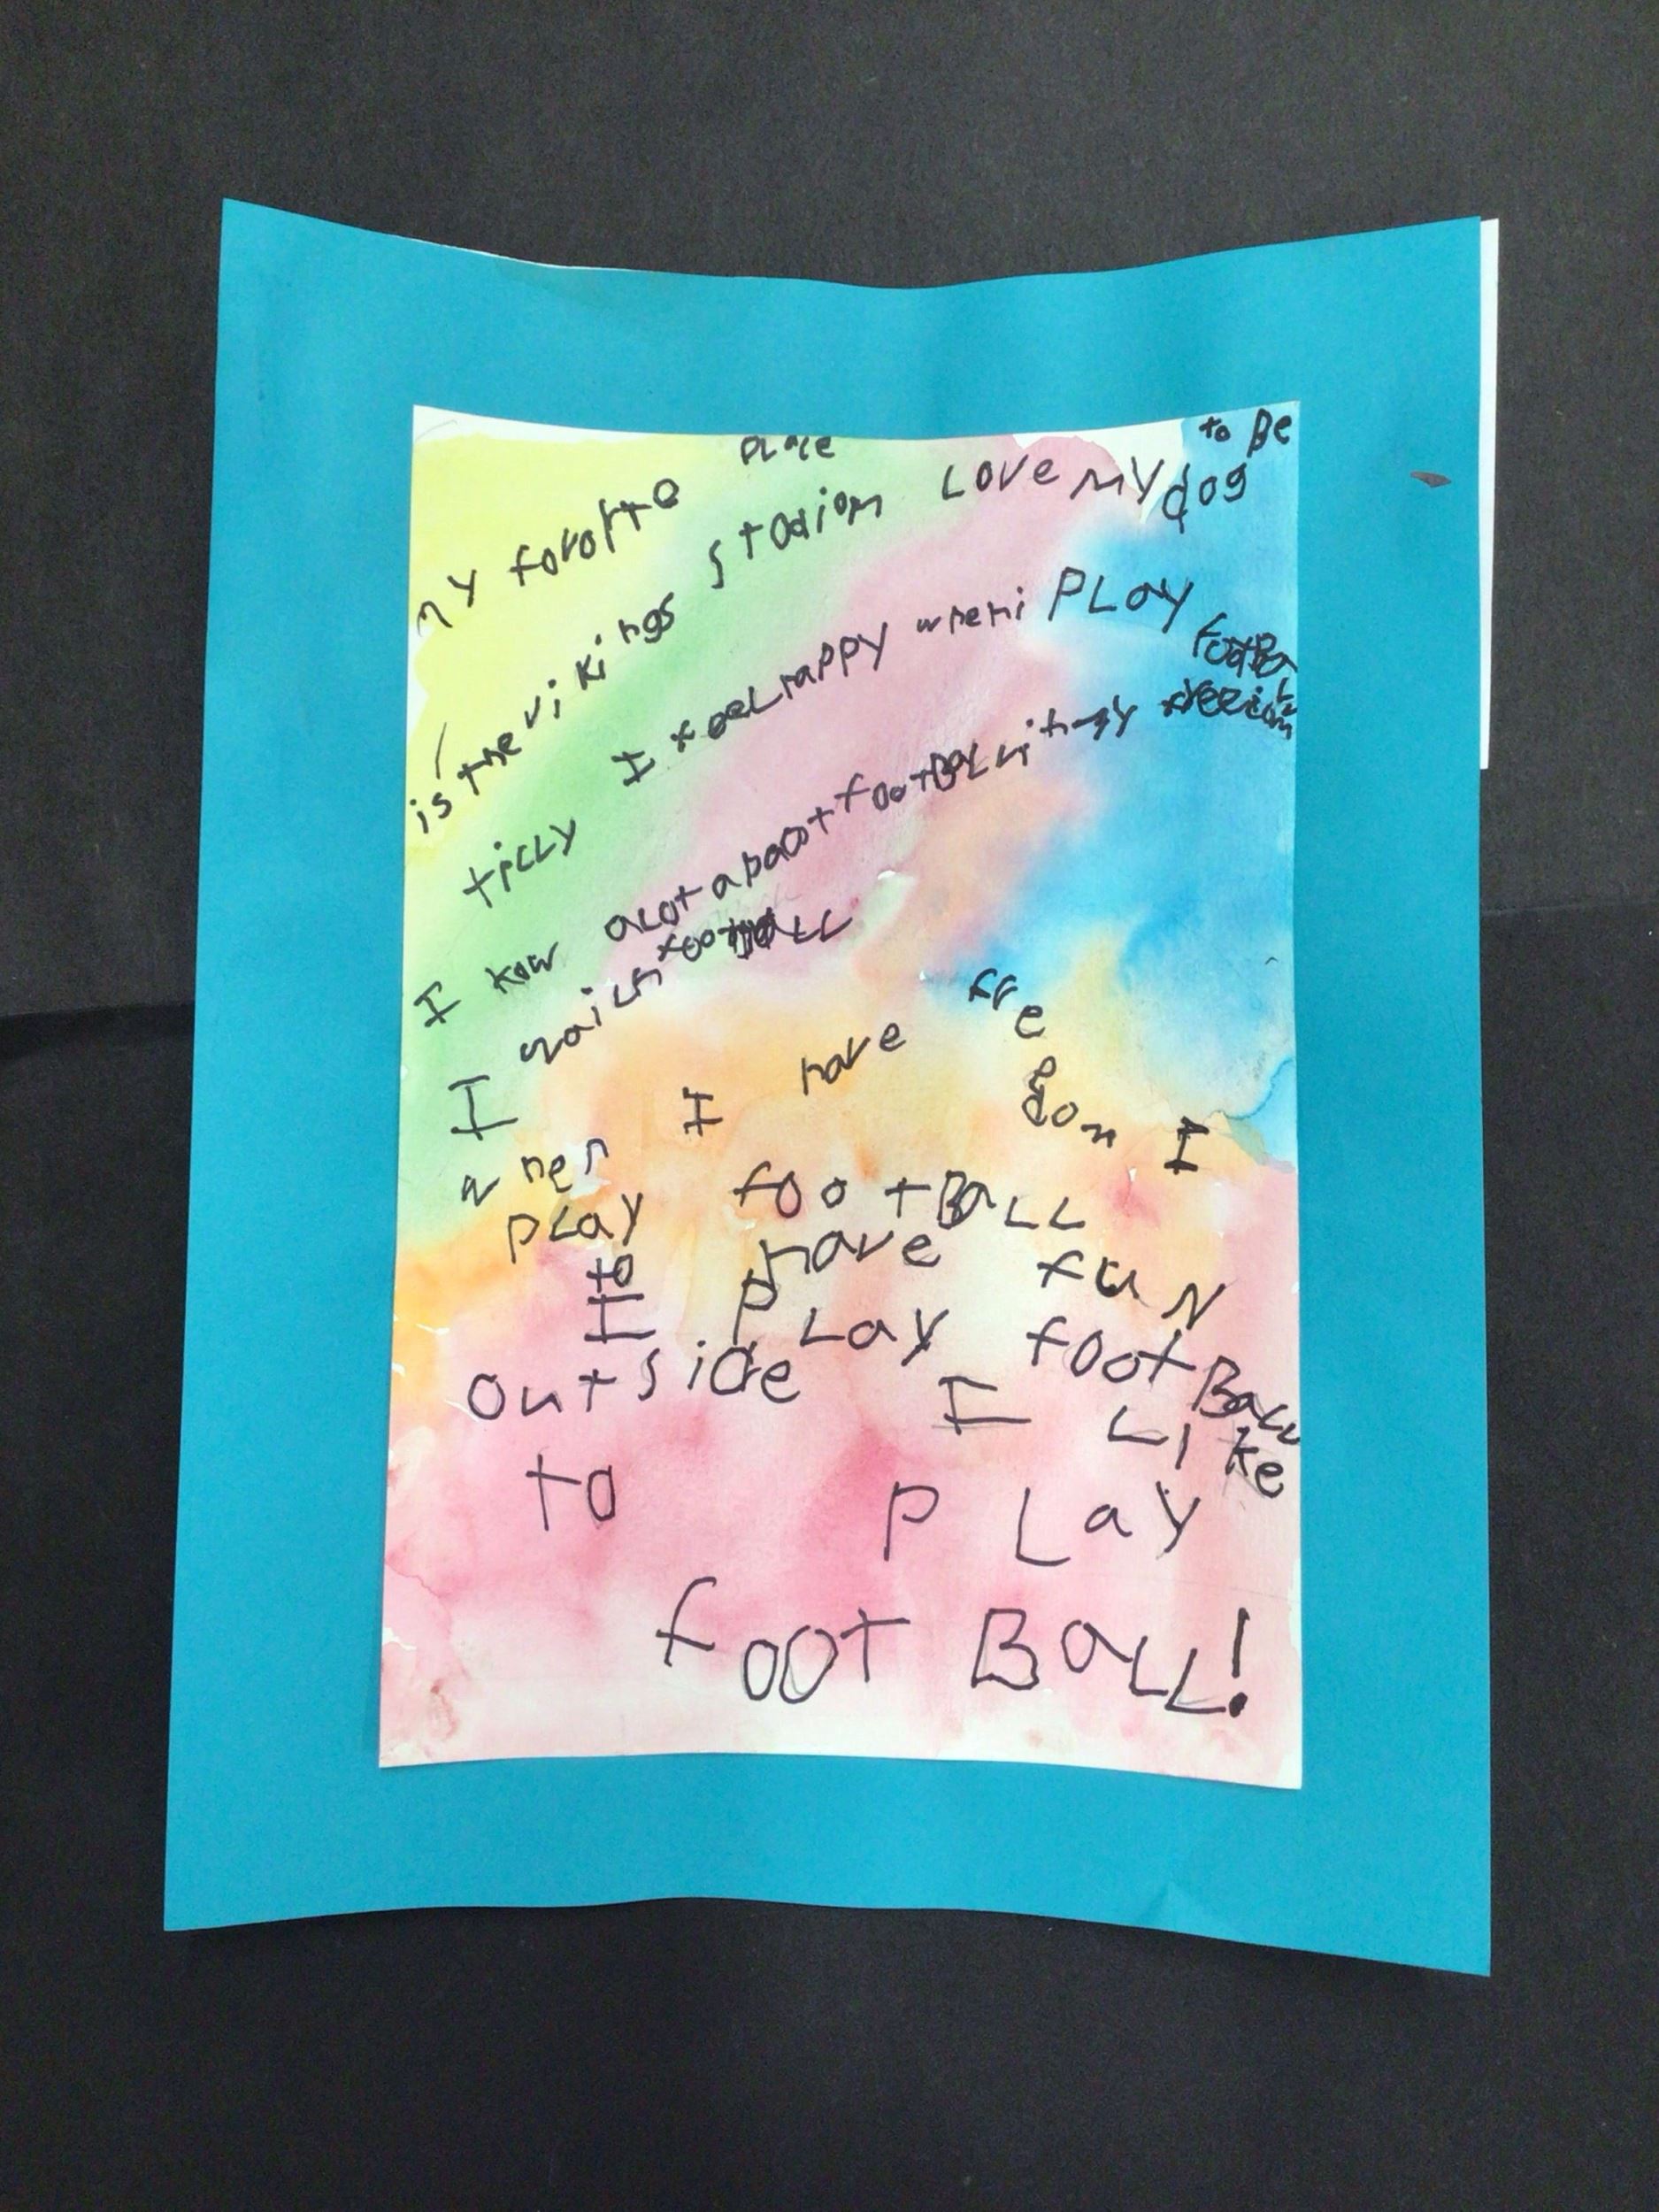 my fovorte place to Be
is the vikings stadiom Love my dog
tiLLy I feeL happy when i PLay footBaLL
I kow aLot abaot footBaLL with my
I waich footbaLL
when I have freedom I
pLay footBaLL
to have fuN
I pLay footBaLL
outside I Like
to pLay
footBaLL!